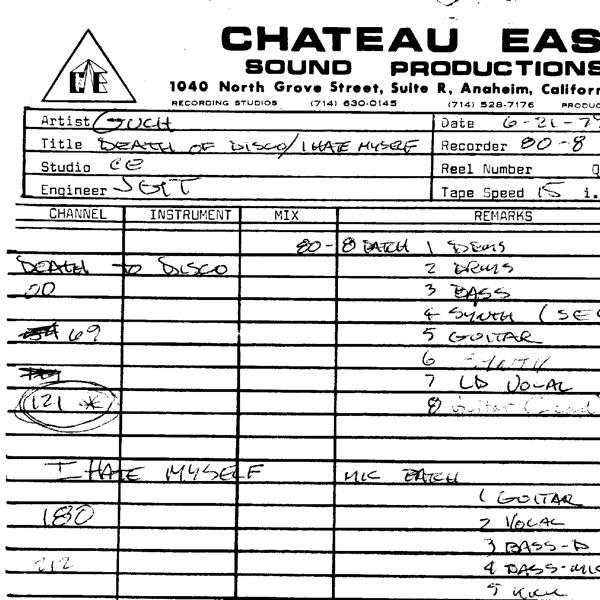 CHATEAU EAS
SOUND PRODUCTIONS
CE
1040 North Grove Street, Suite R, Anaheim, Californ
RECORDING STUDIOS (714) 630-0145 (714) 528-7176 PRODUC
Artist GUCH Date 6-21-79
Title DEATH OF DISCO/I HATE MYSELF Recorder 80-8
Studio CE Reel Number
Engineer Tape Speed 15 i.
CHANNEL INSTRUMENT MIX REMARKS
80-8 PATCH 1 DRUMS
DEATH TO DISCO 2 DRUMS
00 3 BASS
4 SYNTH (SEC
69 5 GUITAR
6
7 LD VOCAL
121 * 8 Guitar
I HATE MYSELF MIC PATCH
1 GUITAR
180 2 VOCAL
3 BASS-D
212 4 BASS-MIC
5 KICK